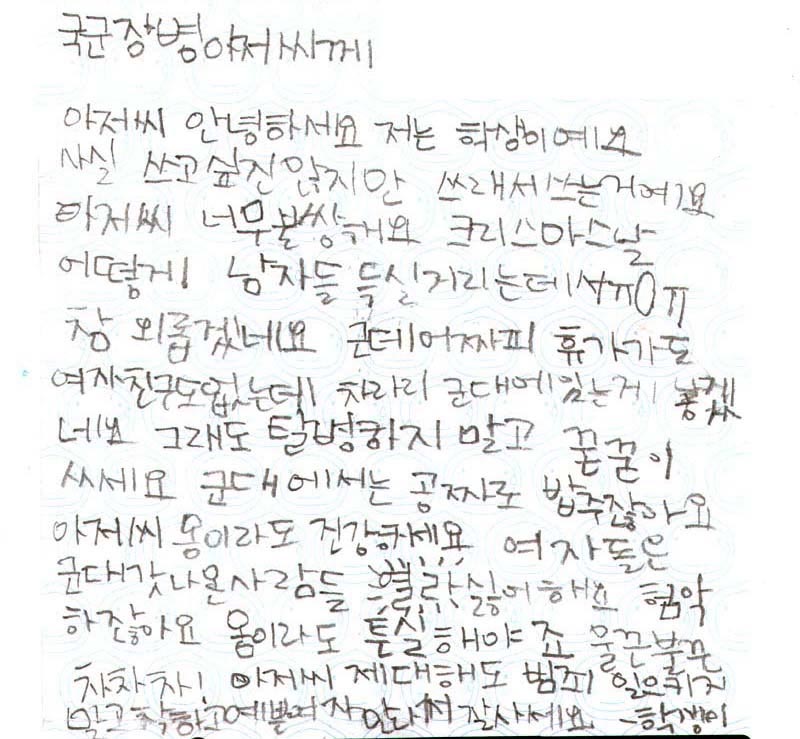 국군장병아저씨께
아저씨 안녕하세요 저는 학생이에요
사실 쓰고싶진않지만 쓰래서쓰는거에요
아저씨 너무불쌍해요 크리스마스날
어떻게 남자들 득실거리는데서ㅠ0ㅠ
참 외롭겠네요 근데어짜피 휴가가도
여자친구도없는데 차라리 군대에있는게 낳겠
네요 그래도 탈병하지 말고 꾿꾿이
싸세요 군대에서는 공짜로 밥주잖아요
아저씨 몸이라도 건강하세요 여자들은
군대갓나온사람들 별로 싫어해요 험악
하잖아요 몸이라도 튼실해야죠 울끈불끈
차차차! 아저씨 제대해도 범죄 일으키지
말고 착하고예쁜여자 만나서 잘사세요 -학생이